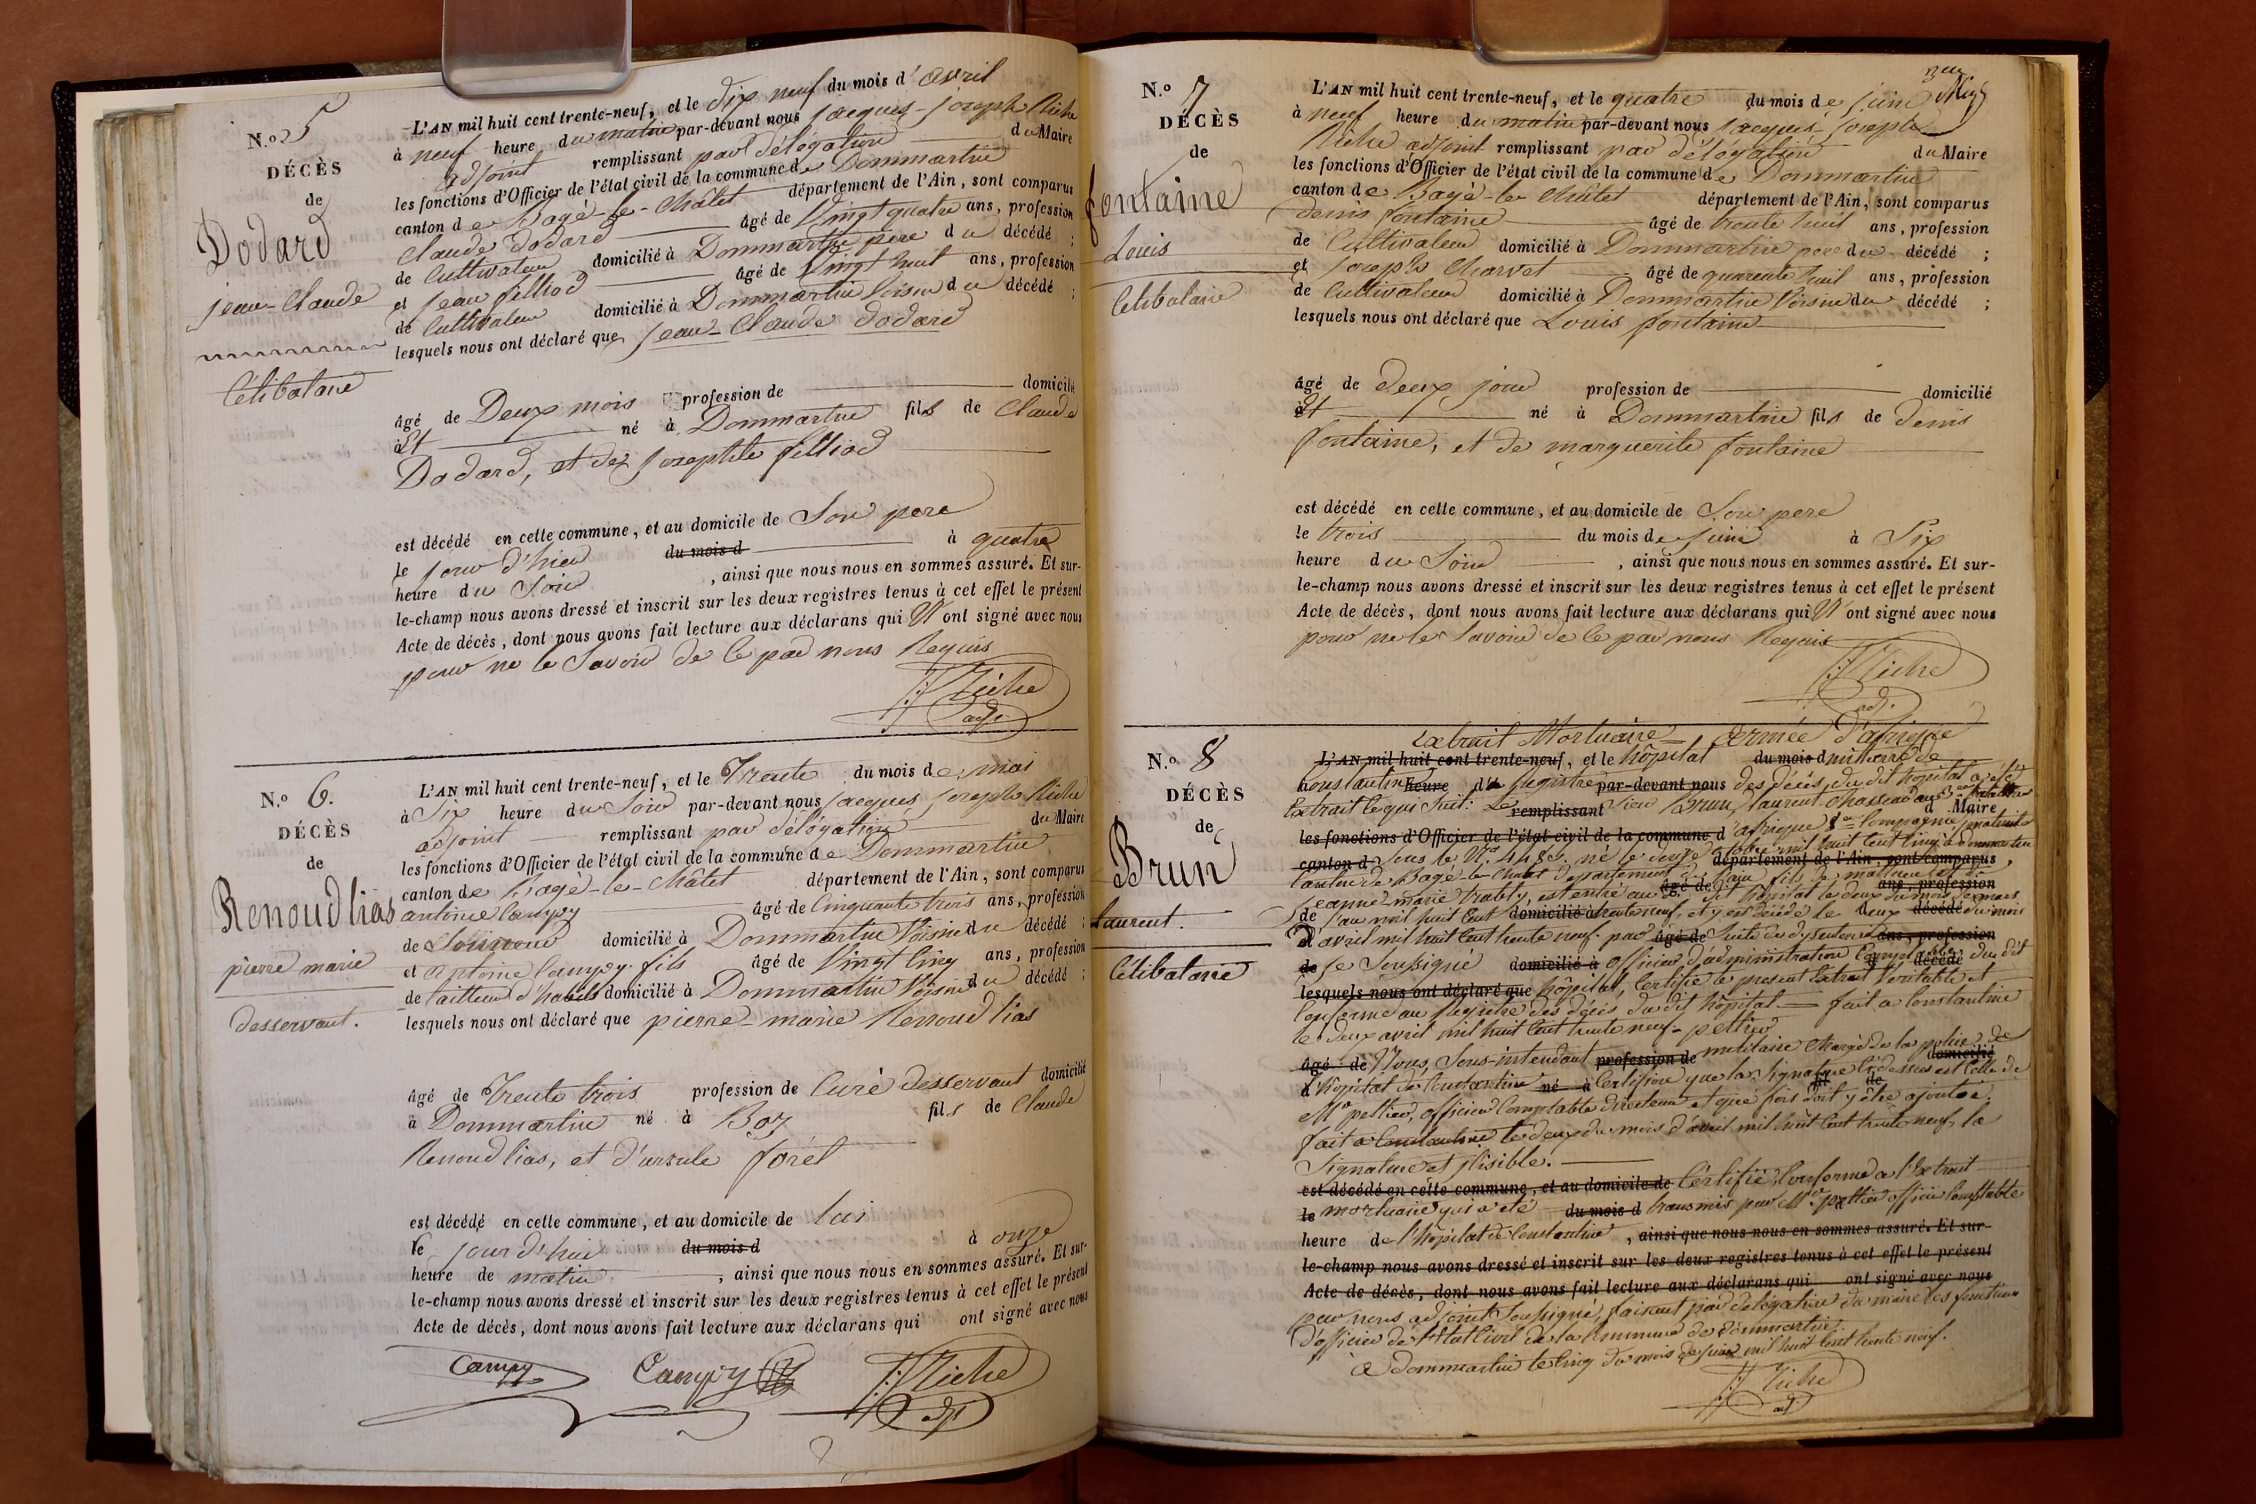 N.º 5
DÉCÈS
de
Dodard
jean-Claude
Célibataire
L'AN mil huit cent trente-neuf, et le dix neuf du mois d'avril
à neuf heure du matin par-devant nous jacques-joseph Riche
adjoint remplissant par délégation du Maire
les fonctions d'Officier de l'état civil de la commune de Dommartin
canton de Bagé-le-Châtel département de l'Ain, sont comparus
Claude Dodard âgé de Vingt quatre ans, profession
de Cultivateur domicilié à Dommartin père du décédé ;
et jean filliod âgé de Vingt huit ans, profession
de Cultivateur domicilié à Dommartin Voisin du décédé ;
lesquels nous ont déclaré que jean-Claude Dodard
âgé de Deux mois profession de domicilié
à Et né à Dommartin fils de Claude
Dodard, et de josephte filliod
est décédé en cette commune, et au domicile de Son pere
le jour d'hier du mois d à quatre
heure du Soir, ainsi que nous nous en sommes assuré. Et sur-
le-champ nous avons dressé et inscrit sur les deux registres tenus à cet effet le présent
Acte de décès, dont nous avons fait lecture aux déclarans qui N'ont signé avec nous
pour ne le Savoir de ce par nous Requis
Riche
adj.
N.º 6.
DÉCÈS
de
Renoudlias
pierre marie
desservant.
L'AN mil huit cent trente-neuf, et le Trente du mois de mai
à Six heure du Soir par-devant nous jacques joseph Riche
adjoint remplissant par délégation du Maire
les fonctions d'Officier de l'état civil de la commune de Dommartin
canton de Bagé-le-Châtel département de l'Ain, sont comparus
antoine Campy âgé de Cinquante trois ans, profession
de domicilié à Dommartin Voisin du décédé ;
et antoine Campy fils âgé de Vingt Cinq ans, profession
de tailleur d'habits domicilié à Dommartin Voisin du décédé ;
lesquels nous ont déclaré que pierre-marie Renoudlias
âgé de Trente trois profession de Curé desservant domicilié
à Dommartin né à Boz fils de Claude
Renoudlias, et d'ursule forêt
est décédé en cette commune, et au domicile de lui
le jourd'hui du mois d à onze
heure de matin, ainsi que nous nous en sommes assuré. Et sur-
le-champ nous avons dressé et inscrit sur les deux registres tenus à cet effet le présent
Acte de décès, dont nous avons fait lecture aux déclarans qui ont signé avec nous
Campy Campy Riche
adj
N.º 7
DÉCÈS
de
fontaine
Louis
Célibataire
L'AN mil huit cent trente-neuf, et le quatre du mois de juin
à neuf heure du matin par-devant nous jacques-joseph
Riche adjoint remplissant par délégation du Maire
les fonctions d'Officier de l'état civil de la commune de Dommartin
canton de Bagé-le-Châtel département de l'Ain, sont comparus
denis fontaine âgé de trente huit ans, profession
de Cultivateur domicilié à Dommartin pere du décédé ;
et joseph Charvet âgé de quarente huit ans, profession
de Cultivateur domicilié à Dommartin Voisin du décédé ;
lesquels nous ont déclaré que Louis fontaine
âgé de deux jour profession de domicilié
à Et né à Dommartin fils de denis
fontaine, et de marguerite fontaine
est décédé en cette commune, et au domicile de Son pere
le trois du mois de juin à Six
heure du Soir, ainsi que nous nous en sommes assuré. Et sur-
le-champ nous avons dressé et inscrit sur les deux registres tenus à cet effet le présent
Acte de décès, dont nous avons fait lecture aux déclarans qui N'ont signé avec nous
pour ne le Savoir de ce par nous Requis
Riche
adj.
N.º 8
DÉCÈS
de
Brun
Laurent.
Célibataire
Extrait Mortuaire = Armée d'afrique
L'AN mil huit cent trente-neuf, et le hôpital du mois d militaire de
Constantine heure du Registre par-devant nous des décès du dit hôpital a été
Extrait Ce qui Suit: Le remplissant Sieur Brun, Laurent Chasseur au 3me bataillon d Maire
les fonctions d'Officier de l'état civil de la commune d d'afrique 8e Compagnie
canton d Sous le Nº 4489, né le douze département de l'Ain, sont comparus
Canton de Bagé-le-Chatel département de l'ain fils de
jeanne marie est entré au âgé de dit hôpital le deux du mois de mars ans, profession
de l'an mil huit Cent domicilié à trente neuf, et y est décédé le deux décédé du mois
d'avril mil huit Cent trente neuf par âgé de Suite de dysenterie ans, profession
de je Soussigné domicilié à officier d'administration Comptable décédé du dit
lesquels nous ont déclaré que hôpital, Certifie le present Extrait Véritable et
Conforme au Registre des décès du dit hôpital = fait a Constantine
le deux avril mil huit Cent trente neuf = peltier
âgé de Nous, Sous-intendant profession de militaire Chargé de la police de domicilié
à l'hôpital de Constantine né à Certifions que la Signature Ci-dessus est Celle de fil de
Mr peltier, officier Comptable directeur et que foi doit y être ajoutée.
fait a Constantine le deux du mois d'avril mil huit Cent trente neuf, la
Signature est illisible.
est décédé en cette commune, et au domicile de Certifié Conforme a l'Extrait
le mortuaire qui a été du mois d transmis par Mr peltier officier Comptable
heure de l'hôpital de Constantine, ainsi que nous nous en sommes assuré. Et sur-
le-champ nous avons dressé et inscrit sur les deux registres tenus à cet effet le présent
Acte de décès, dont nous avons fait lecture aux déclarans qui ont signé avec nous
par nous adjoint Soussigné, faisant par délégation du maire les fonctions
d'officier de l'état Civil de la Commune de Dommartin.
a Dommartin le Cinq du mois de juin mil huit Cent trente neuf.
Riche
adj.